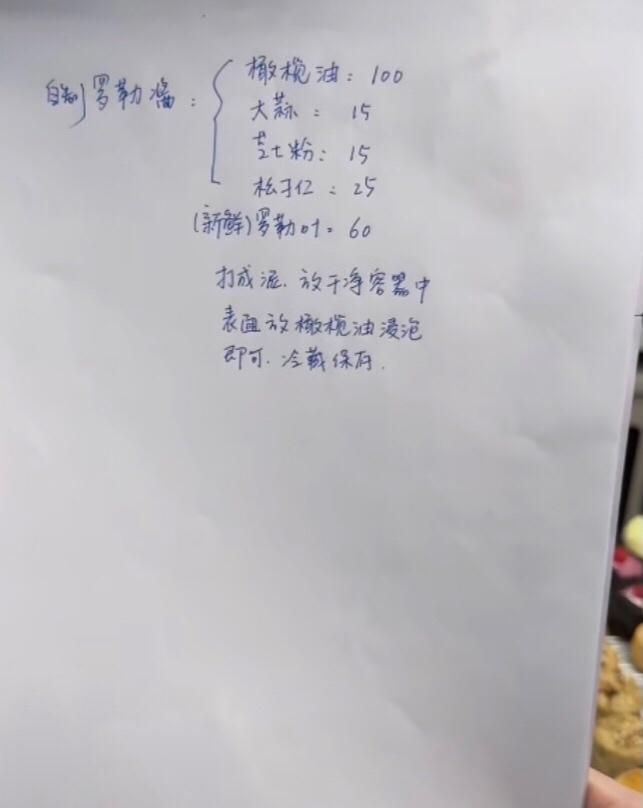 自制罗勒酱:
橄榄油:100
大蒜:15
芝士粉:15
松子仁:25
(新鲜)罗勒叶:60
打成泥.放干净容器中
表面放橄榄油浸泡
即可.冷藏保存.